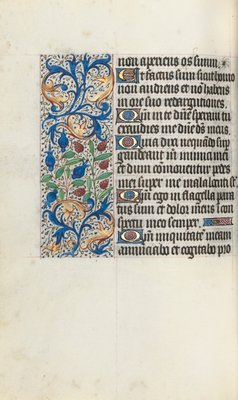 non aperiens os suum.
Et factus sum sicut homo
non audiens et nō habens
in ore suo redargutiones.
Qm̄ in te dn̄e speraui tu
exaudies me dn̄e ds̄ meus.
Quia dixi nequādo sup
gaudeant m̄ inimici mei
et dum cōmouentur pedes
mei super me magna locuti sūt
Qm̄ ego in flagella para
tus sum et dolor meus ī con
spectu meo semper.
Qm̄ iniquitatē meam
annūciabo et cogitabo pro